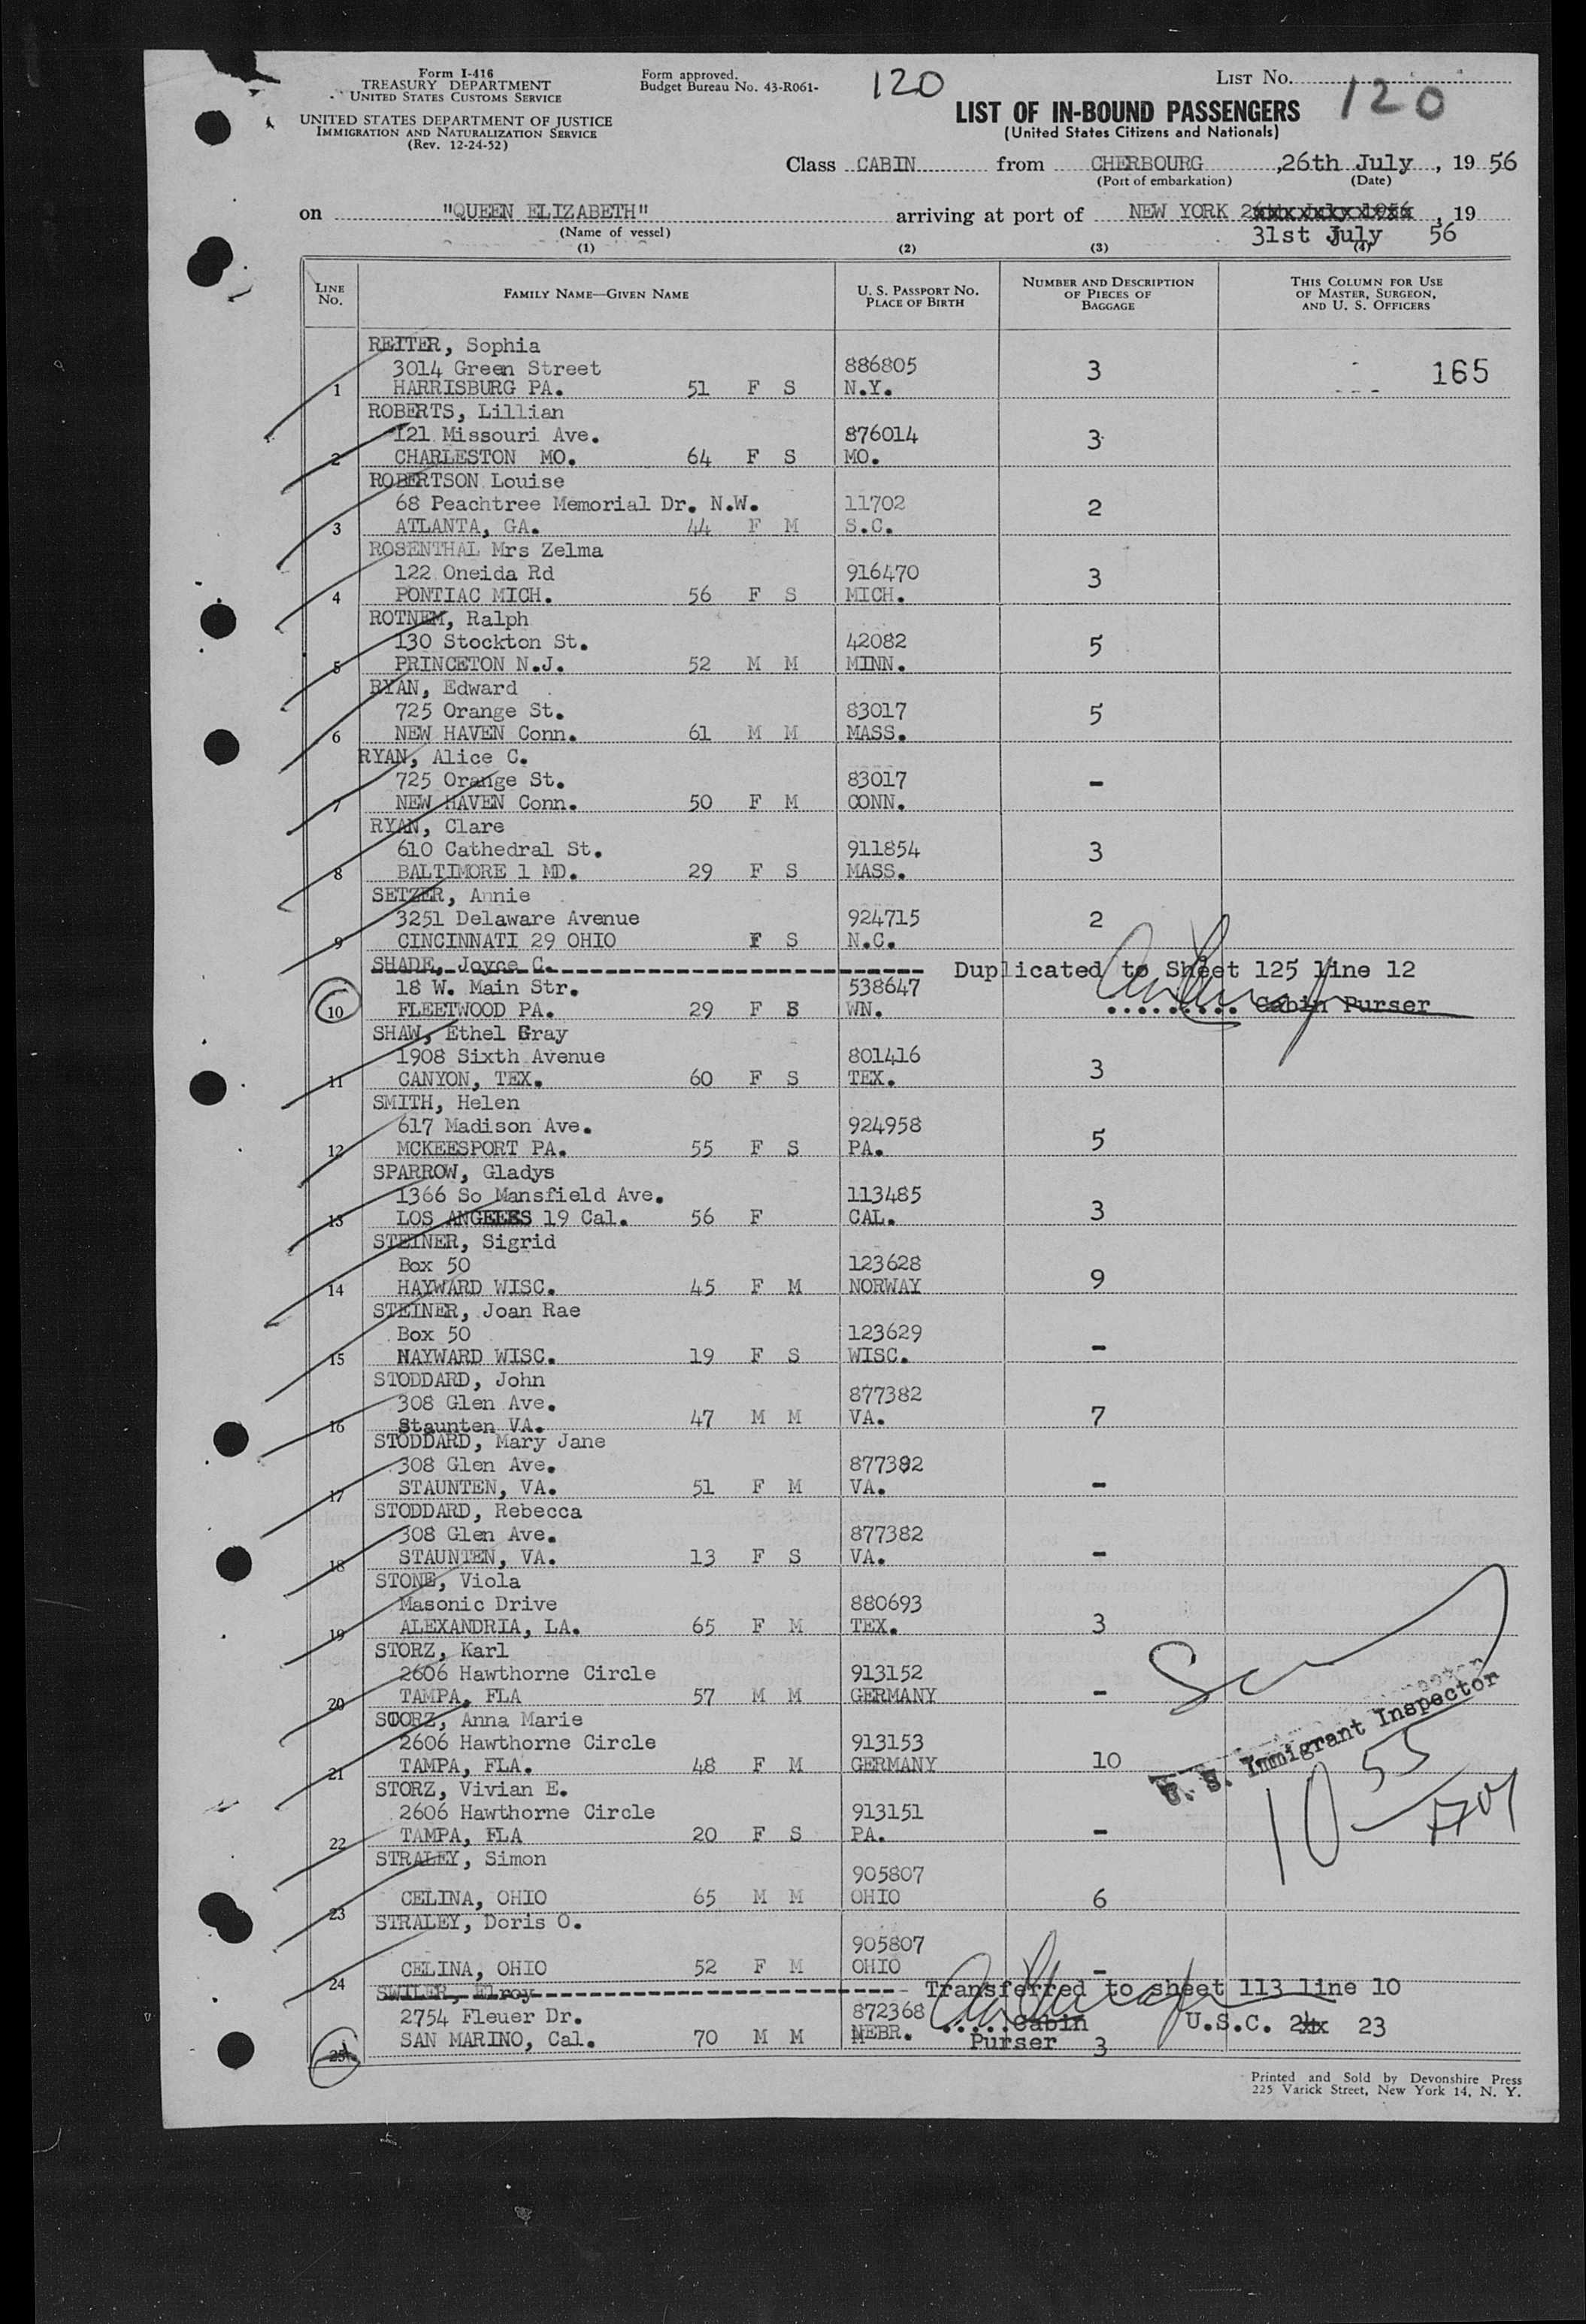 Form I-416
TREASURY DEPARTMENT
UNITED STATES CUSTOMS SERVICE
UNITED STATES DEPARTMENT OF JUSTICE
IMMIGRATION AND NATURALIZATION SERVICE
(Rev. 12-24-52)
Form approved.
Budget Bureau No. 43-R061-
120
LIST NO.
120
LIST OF IN-BOUND PASSENGERS
(United States Citizens and Nationals)
Class CABIN from CHERBOURG ,26th July , 19 56
(Port of embarkation) (Date)
on "QUEEN ELIZABETH" arriving at port of NEW YORK 26th July 1956 , 19
(Name of vessel) 31st July 56
(1) (2) (3) (4)
LINE NO.
FAMILY NAME—GIVEN NAME
U. S. PASSPORT NO. PLACE OF BIRTH
NUMBER AND DESCRIPTION OF PIECES OF BAGGAGE
THIS COLUMN FOR USE OF MASTER, SURGEON, AND U. S. OFFICERS
REITER, Sophia
3014 Green Street 886805 3 165
1 HARRISBURG PA. 51 F S N.Y.
ROBERTS, Lillian
121 Missouri Ave. 876014 3
2 CHARLESTON MO. 64 F S MO.
ROBERTSON Louise
68 Peachtree Memorial Dr. N.W. 11702 2
3 ATLANTA, GA. 44 F M S.C.
ROSENTHAL Mrs Zelma
122 Oneida Rd 916470 3
4 PONTIAC MICH. 56 F S MICH.
ROTNEM, Ralph
130 Stockton St. 42082 5
5 PRINCETON N.J. 52 M M MINN.
RYAN, Edward
725 Orange St. 83017 5
6 NEW HAVEN Conn. 61 M M MASS.
RYAN, Alice C.
725 Orange St. 83017 -
7 NEW HAVEN Conn. 50 F M CONN.
RYAN, Clare
610 Cathedral St. 911854 3
8 BALTIMORE 1 MD. 29 F S MASS.
SETZER, Annie
3251 Delaware Avenue 924715 2
9 CINCINNATI 29 OHIO F S N.C.
SHADE, Joyce C. Duplicated to Sheet 125 line 12
18 W. Main Str. 538647
10 FLEETWOOD PA. 29 F S WN. ......... Cabin Purser
SHAW, Ethel Gray
1908 Sixth Avenue 801416 3
11 CANYON, TEX. 60 F S TEX.
SMITH, Helen
617 Madison Ave. 924958 5
12 MCKEESPORT PA. 55 F S PA.
SPARROW, Gladys
1366 So Mansfield Ave. 113485 3
13 LOS ANGELES 19 Cal. 56 F CAL.
STEINER, Sigrid
Box 50 123628 9
14 HAYWARD WISC. 45 F M NORWAY
STEINER, Joan Rae
Box 50 123629 -
15 HAYWARD WISC. 19 F S WISC.
STODDARD, John
308 Glen Ave. 877382 7
16 Staunten VA. 47 M M VA.
STODDARD, Mary Jane
308 Glen Ave. 877382 -
17 STAUNTEN, VA. 51 F M VA.
STODDARD, Rebecca
308 Glen Ave. 877382 -
18 STAUNTEN, VA. 13 F S VA.
STONE, Viola
Masonic Drive 880693 3
19 ALEXANDRIA, LA. 65 F M TEX.
STORZ, Karl
2606 Hawthorne Circle 913152 -
20 TAMPA, FLA 57 M M GERMANY
STORZ, Anna Marie
2606 Hawthorne Circle 913153 10
21 TAMPA, FLA. 48 F M GERMANY
U. S. Immigrant Inspector
STORZ, Vivian E.
2606 Hawthorne Circle 913151 -
22 TAMPA, FLA 20 F S PA.
10 55
STRALEY, Simon
905807
23 CELINA, OHIO 65 M M OHIO 6
STRALEY, Doris O.
905807
24 CELINA, OHIO 52 F M OHIO -
SWILER, Elroy Transferred to sheet 113 line 10
2754 Fleuer Dr. 872368 ..... Cabin U.S.C. 24x 23
25 SAN MARINO, Cal. 70 M M NEBR. Purser 3
Printed and Sold by Devonshire Press
225 Varick Street, New York 14, N. Y.